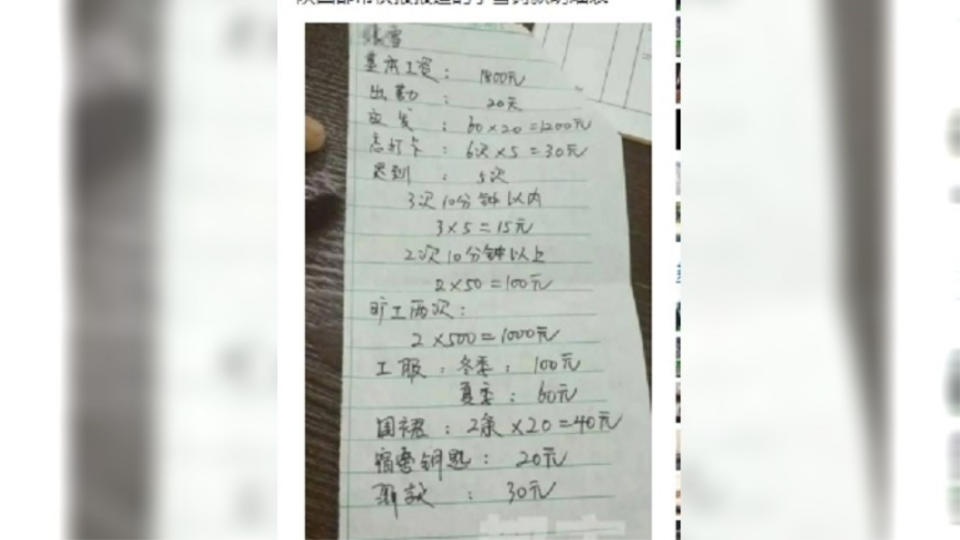 张雪
基本工资： 1800元
出勤 ： 20天
应发 ： 60×20=1200元
忘打卡 ： 6次×5=30元
迟到 ： 5次
3次10分钟以内
3×5=15元
2次10分钟以上
2×50=100元
旷工两次：
2×500=1000元
工服：冬季： 100元
夏季： 60元
围裙：2条×20=40元
宿舍钥匙： 20元
： 30元